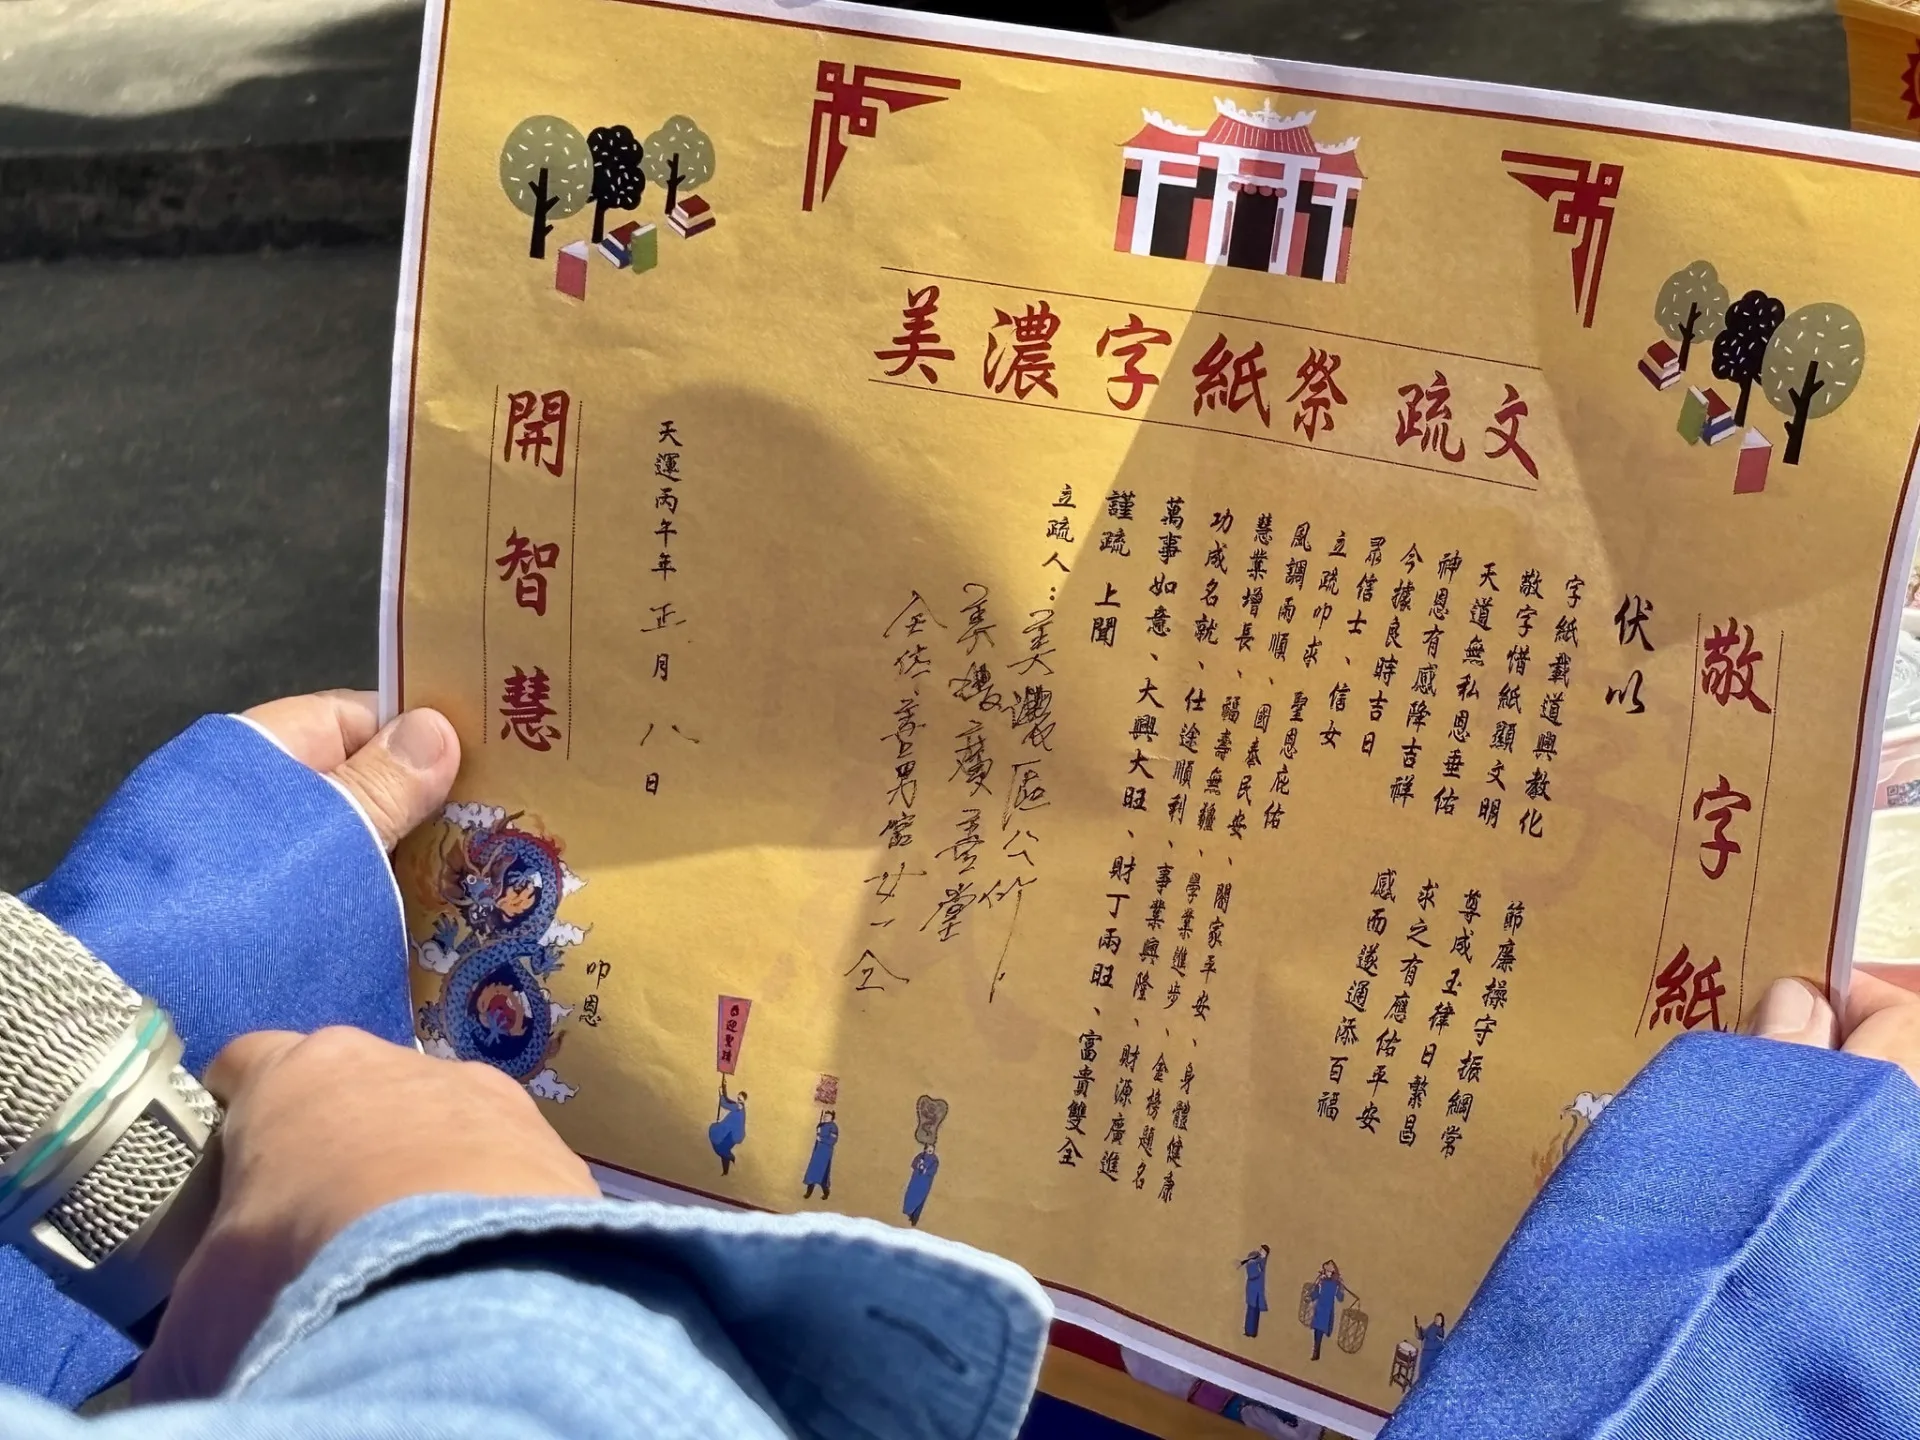 美濃字紙祭 疏文
敬字紙
伏以
字紙載道興教化
敬字惜紙顯文明
天道無私恩垂佑
神恩有感降吉祥
節廉操守振綱常
尊咸玉律日繫昌
求之有應佑平安
感而遂通添百福
今據良時吉日
眾信士、信女
立疏叩求 聖恩庇佑
風調雨順、國泰民安、闔家平安、身體健康
慧業增長、福壽無疆、學業進步、金榜題名
功成名就、仕途順利、事業興隆、財源廣進
萬事如意、大興大旺、財丁兩旺、富貴雙全
謹疏 上聞
立疏人:美濃區公所
美濃廣善堂
仝信善男信女一仝
天運丙午年正月八日
叩恩
開智慧
恭迎聖蹟